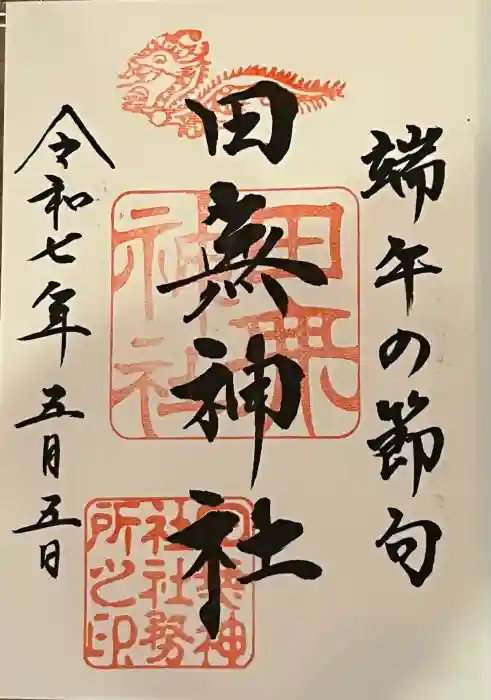 端午の節句
田無神社
令和七年五月五日
田無神社
田無神社社務所之印